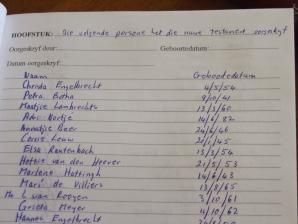 HOOFSTUK: Die volgende persone het die nuwe Testament oorgeskryf
Oorgeskryf deur: Geboortedatum:
Datum oorgeskryf:
Naam Geboortedatum
Christa Engelbrecht 4/5/54
Petra Botha 9/10/41
Maatjie Lambrechts 13/3/60
Adri Nortje 14/6/82
Annatjie Beer 24/6/46
Corrie Louw 21/1/45
Elsa Rautenbach 13/3/56
Hettie van den Heever 21/5/53
Marlene Hattingh 14/6/43
Mari de Villiers 13/8/65
L van Rooyen 3/10/61
Grieta Meyer 4/10/62
Hannes Engelbrecht